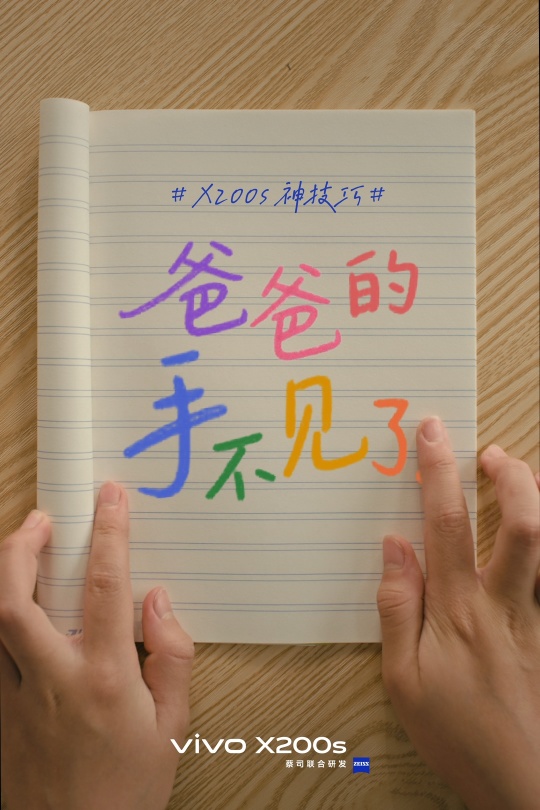 # X200s 神技巧 #
爸爸的
手不见了
vivo X200s
蔡司联合研发 ZEISS